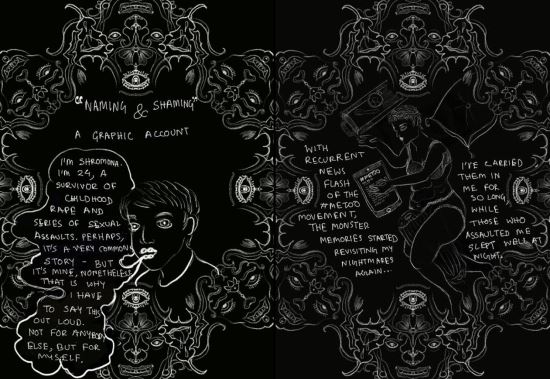 "NAMING & SHAMING"
A GRAPHIC ACCOUNT
I'M SHROMONA.
I'M 24, A
SURVIVOR OF
CHILDHOOD
RAPE AND
SERIES OF SEXUAL
ASSAULTS. PERHAPS,
IT'S A VERY COMMON
STORY - BUT
IT'S MINE, NONETHELESS
THAT IS WHY
I HAVE
TO SAY THIS
OUT LOUD.
NOT FOR ANYBODY
ELSE, BUT FOR
MYSELF.
WITH
RECURRENT
NEWS
FLASH
OF THE
#METOO
MOVEMENT,
THE MONSTER
MEMORIES STARTED
REVISITING MY
NIGHTMARES
AGAIN...
#METOO
I'VE CARRIED
THEM IN
ME FOR
SO LONG,
WHILE
THOSE WHO
ASSAULTED ME
SLEPT WELL AT
NIGHT.